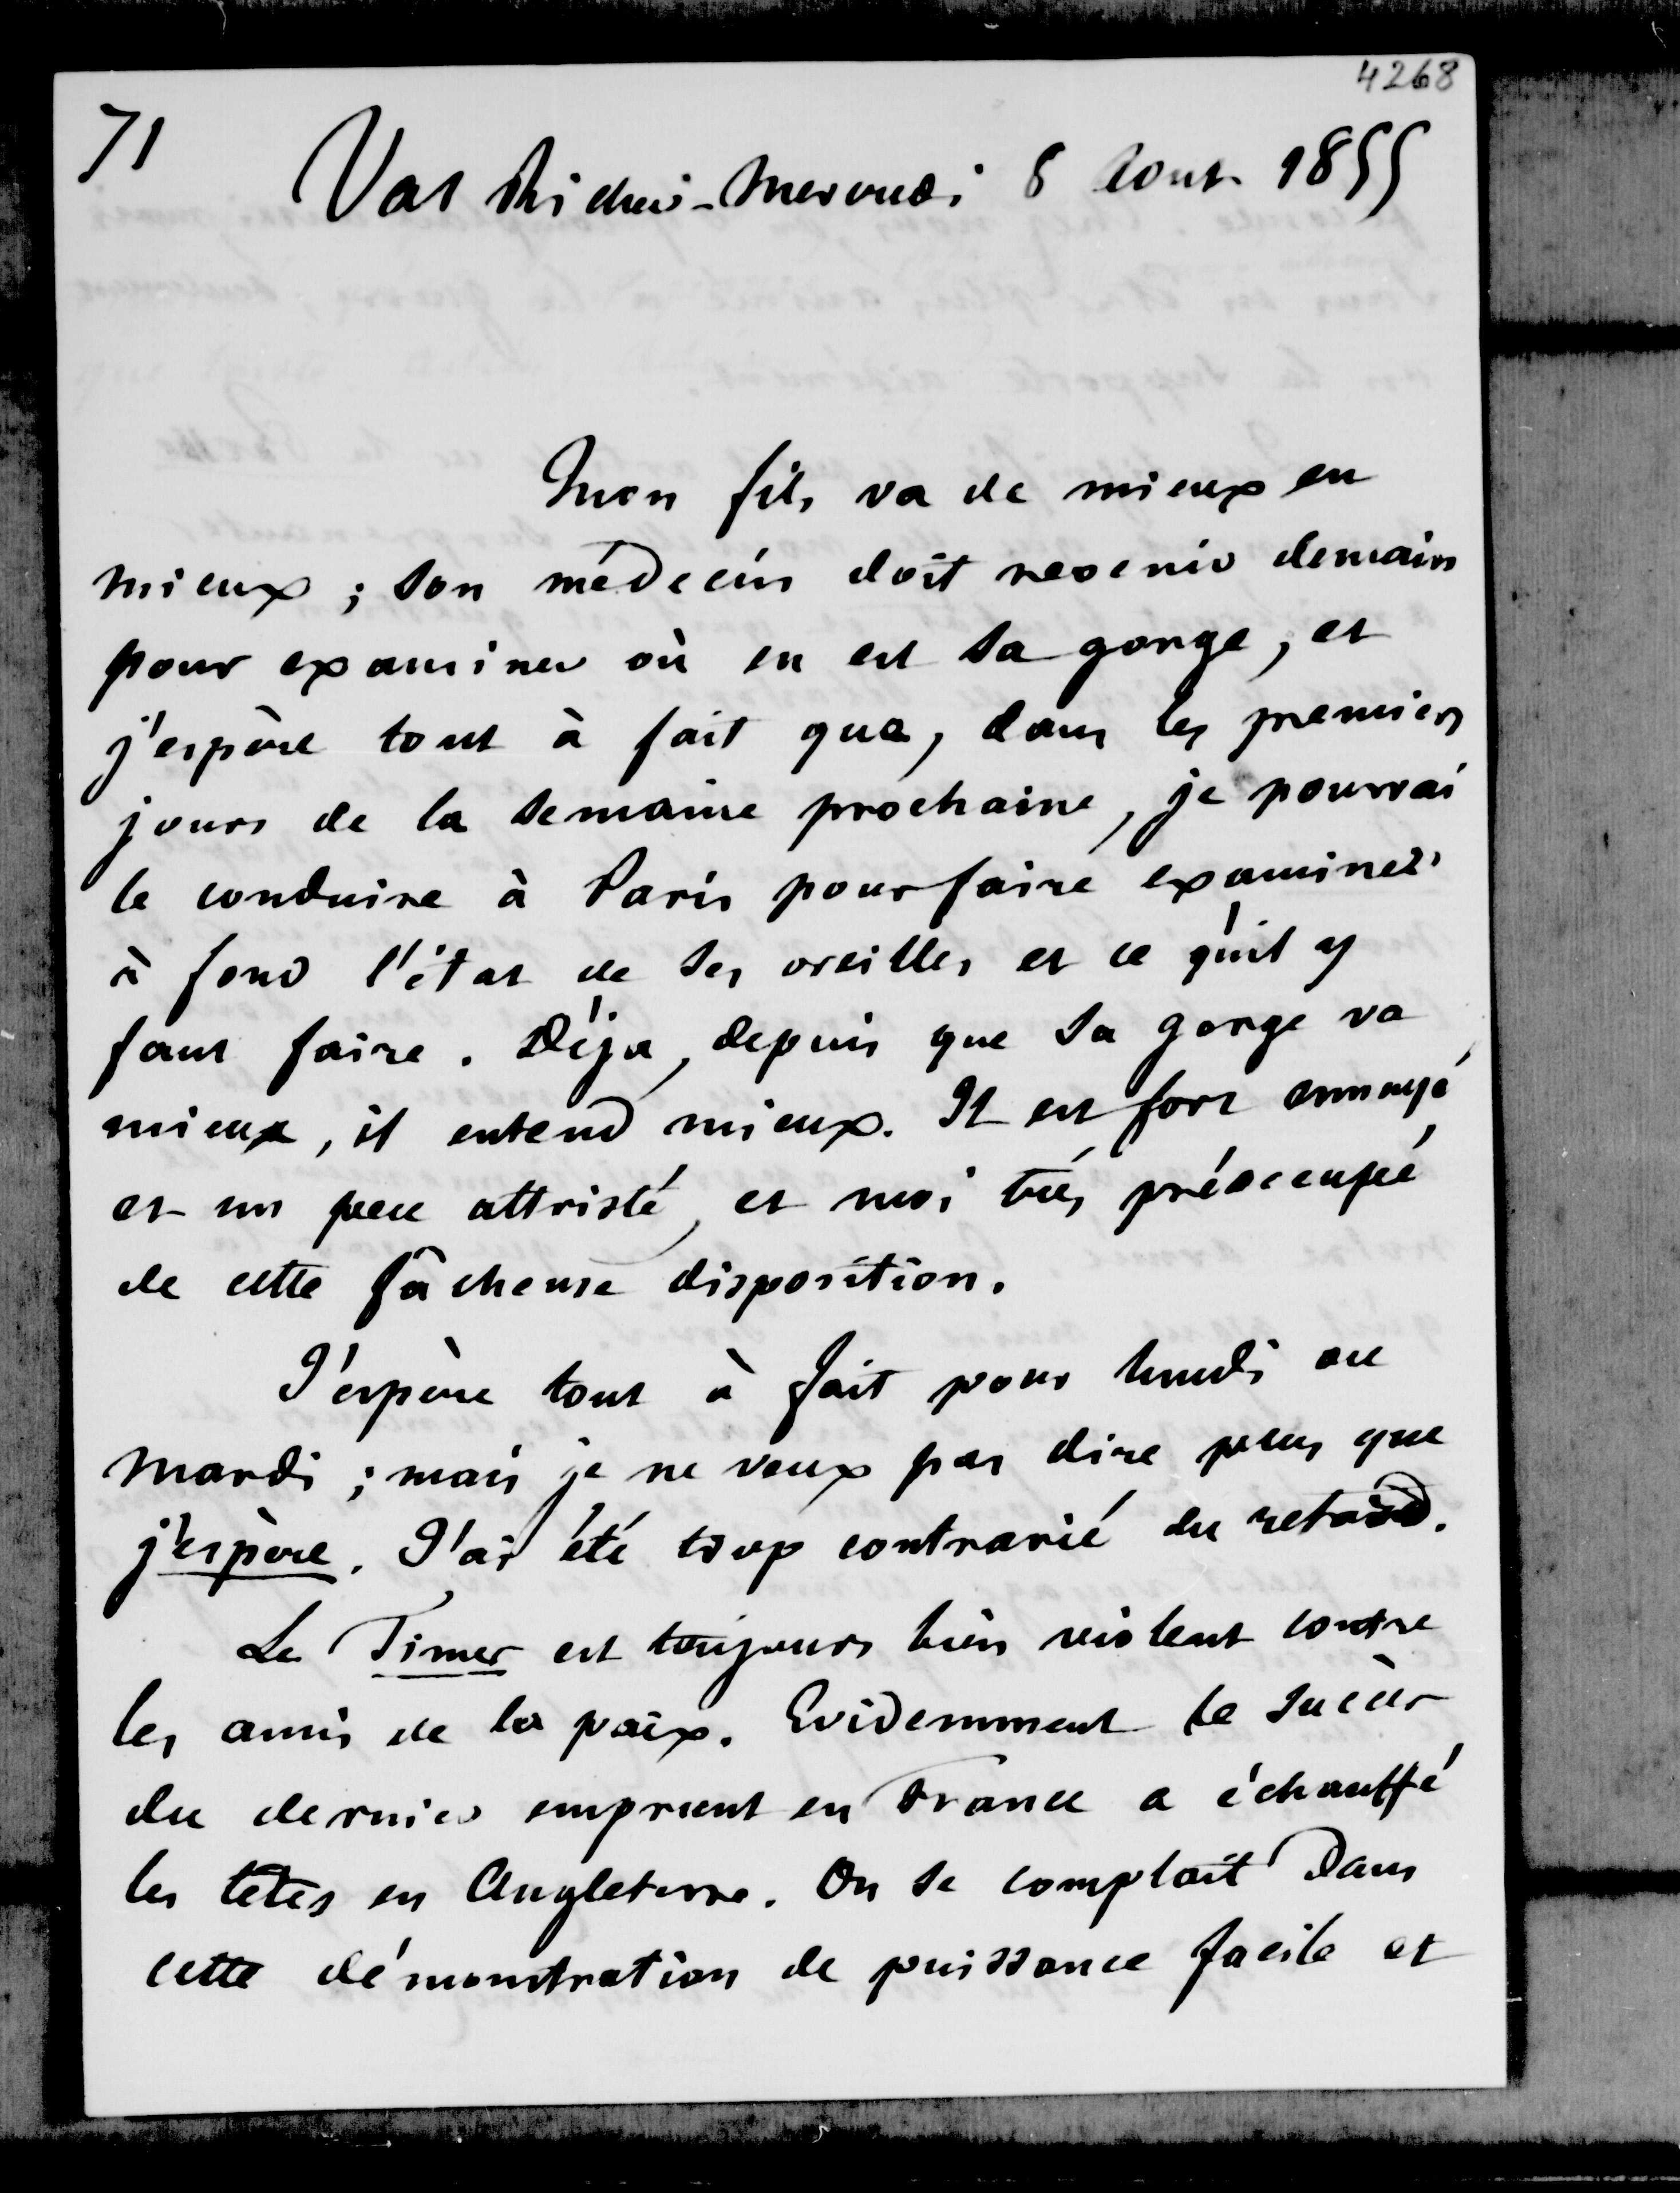 4268
71
Val Richer - Mercredi 8 Aout 1855
Mon fils va de mieux en
mieux ; son médecin doit revenir demain
pour examiner où en est sa gorge, et
j'espère tout à fait que, dans les premiers
jours de la semaine prochaine, je pourrai
le conduire à Paris pour faire examiner
à fond l'état de ses oreilles et ce qu'il y
faut faire. Déja, depuis que sa gorge va
mieux, il entend mieux. Il est fort ennuyé
et un peu attristé, et moi très préoccupé
de cette fâcheuse disposition.
J'espère tout à fait pour lundi ou
mardi ; mais je ne veux pas dire plus que
j'espère. J'ai été trop contrarié du retard.
Le Times est toujours bien violent contre
les amis de la paix. Evidemment le succès
du dernier emprunt en France a échauffé
les têtes en Angleterre. On se complait dans
cette démonstration de puissance facile et